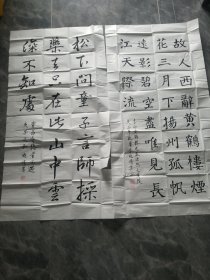 故人西辭黃鶴樓煙
花三月下揚州孤帆
遠影碧空盡唯見長
江天際流
松下問童子言師採
藥去只在此山中雲
深不知處